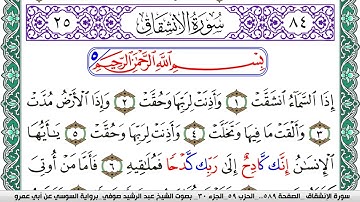 ٢٥ سُورَةُ الِانْشِقَاقِ ٨٤
بِسْمِ اللَّهِ الرَّحْمَٰنِ الرَّحِيمِ
إِذَا السَّمَاءُ انشَقَّتْ ١ وَأَذِنَتْ لِرَبِّهَا وَحُقَّتْ ٢ وَإِذَا الْأَرْضُ مُدَّتْ
٣ وَأَلْقَتْ مَا فِيهَا وَتَخَلَّتْ ٤ وَأَذِنَتْ لِرَبِّهَا وَحُقَّتْ ٥ يَٰأَيُّهَا
الْإِنسَٰنُ إِنَّكَ كَادِحٌ إِلَىٰ رَبِّكَ كَدْحًا فَمُلَٰقِيهِ ٦ فَأَمَّا مَنْ أُوتِىَ
سورة الانشقاق، الصفحة ٥٨٩، الحزب ٥٩، الجزء ٣٠، بصوت الشيخ عبد الرشيد صوفي برواية السوسي عن أبي عمرو